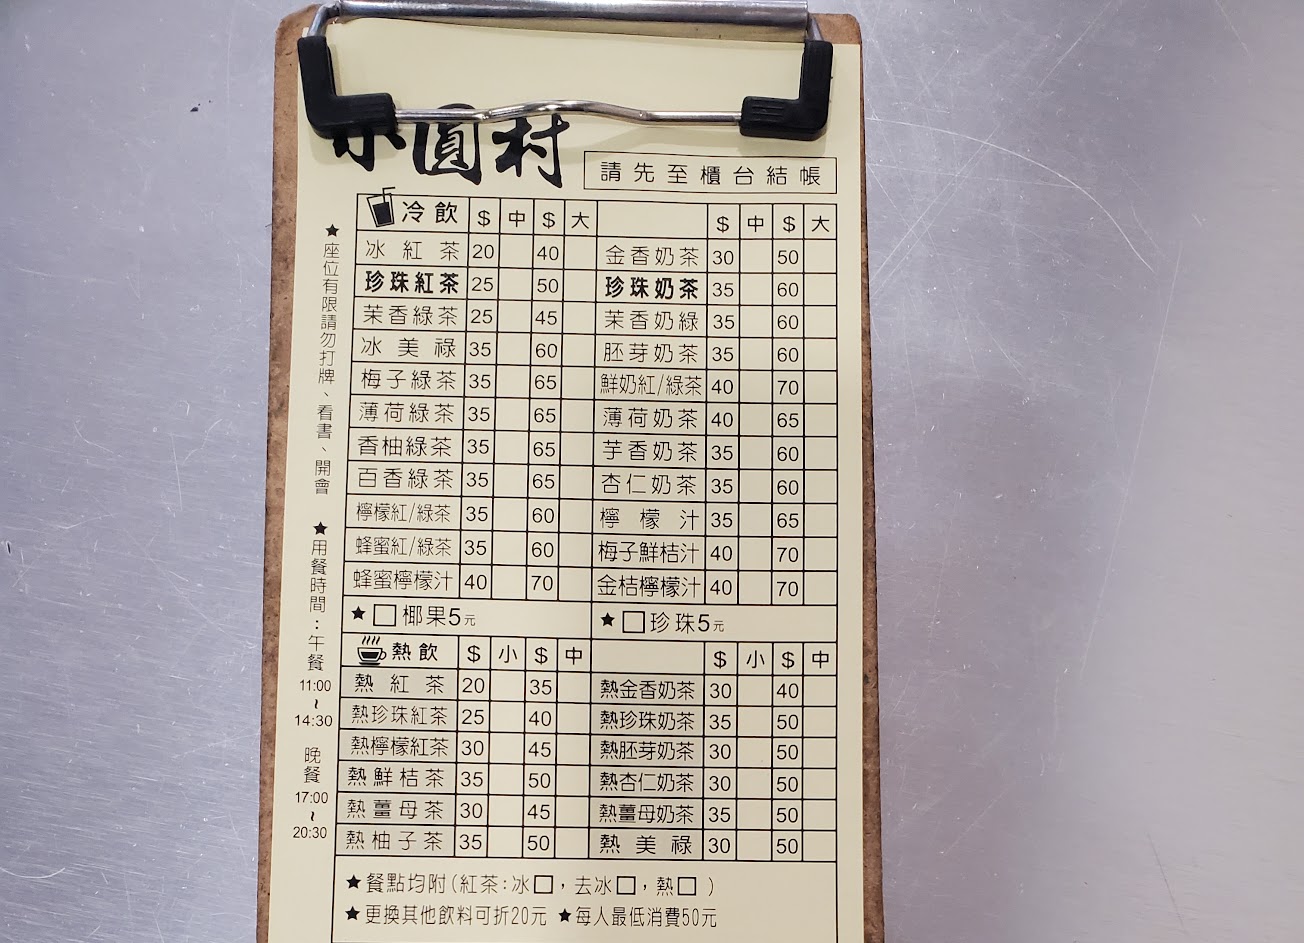 小圓村
請先至櫃台結帳
★座位有限請勿打牌、看書、開會 ★用餐時間：午餐 11:00~14:30 晚餐 17:00~20:30
冷飲 $ 中 $ 大 $ 中 $ 大
冰紅茶 20 40 金香奶茶 30 50
珍珠紅茶 25 50 珍珠奶茶 35 60
茉香綠茶 25 45 茉香奶綠 35 60
冰美祿 35 60 胚芽奶茶 35 60
梅子綠茶 35 65 鮮奶紅/綠茶 40 70
薄荷綠茶 35 65 薄荷奶茶 40 65
香柚綠茶 35 65 芋香奶茶 35 60
百香綠茶 35 65 杏仁奶茶 35 60
檸檬紅/綠茶 35 60 檸檬汁 35 65
蜂蜜紅/綠茶 35 60 梅子鮮桔汁 40 70
蜂蜜檸檬汁 40 70 金桔檸檬汁 40 70
★□椰果5元 ★□珍珠5元
熱飲 $ 小 $ 中 $ 小 $ 中
熱紅茶 20 35 熱金香奶茶 30 40
熱珍珠紅茶 25 40 熱珍珠奶茶 35 50
熱檸檬紅茶 30 45 熱胚芽奶茶 30 50
熱鮮桔茶 35 50 熱杏仁奶茶 30 50
熱薑母茶 30 45 熱薑母奶茶 35 50
熱柚子茶 35 50 熱美祿 30 50
★餐點均附(紅茶:冰□，去冰□，熱□)
★更換其他飲料可折20元 ★每人最低消費50元